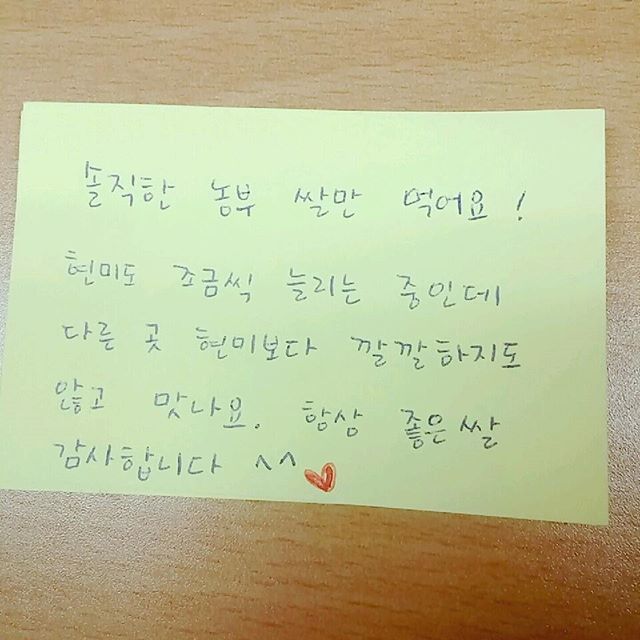 솔직한 농부 쌀만 먹어요!
현미도 조금씩 늘리는 중인데
다른 곳 현미보다 깔깔하지도
않고 맛나요. 항상 좋은 쌀
감사합니다 ^^